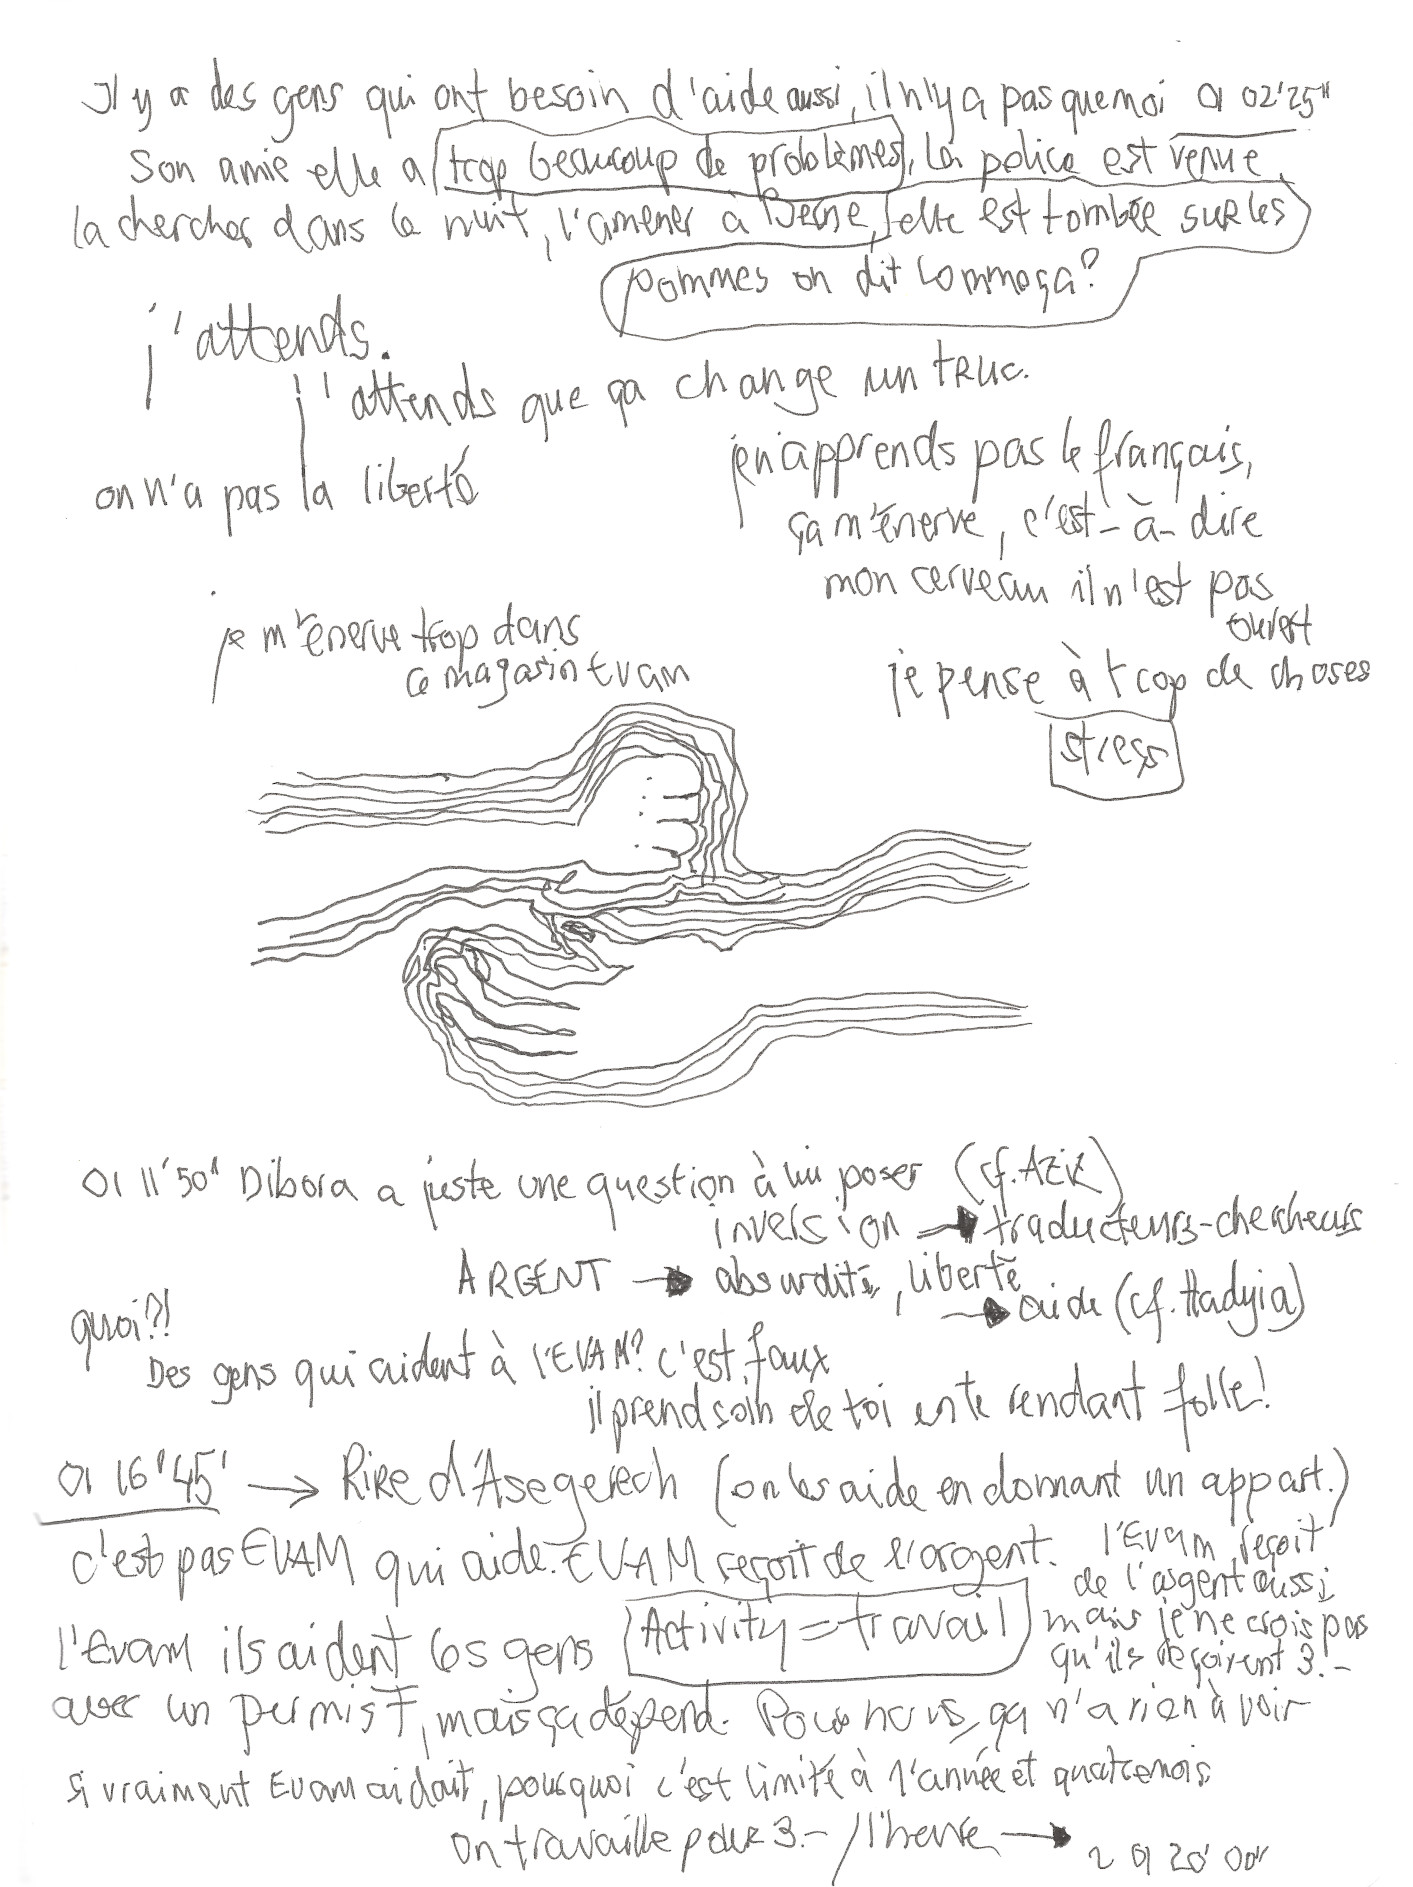 Il y a des gens qui ont besoin d'aide aussi, il n'y a pas que moi 01 02'25"
Son amie elle a trop beaucoup de problèmes, la police est venue
la chercher dans la nuit, l'amener à Berne, elle est tombée sur les
pommes on dit comme ça?
j'attends.
j'attends que ça change un truc.
on n'a pas la liberté
je n'apprends pas le français,
ça m'énerve, c'est-à-dire
mon cerveau il n'est pas
ouvert
je m'énerve trop dans
ce magasin Evam
je pense à trop de choses
stress
01 11'50" Dibora a juste une question à lui poser (cf. AZIZ)
inversion → traducteurs-chercheurs
ARGENT → absurdité, liberté
→ aide (cf. Hadyia)
quoi?!
Des gens qui aident à l'EVAM? c'est faux
il prend soin de toi en te rendant folle!
01 16'45' → Rire d'Asegerech (on les aide en donnant un appart.)
c'est pas EVAM qui aide. EVAM reçoit de l'argent.
l'Evam reçoit
de l'argent aussi
mais je ne crois pas
qu'ils reçoivent 3.-
l'Evam ils aident les gens Activity = travail
avec un permis F, mais ça dépend. Pour nous, ça n'a rien à voir
si vraiment Evam aidait, pourquoi c'est limité à l'année et quatre mois
on travaille pour 3.- / l'heure →
~ 01 20' 00"